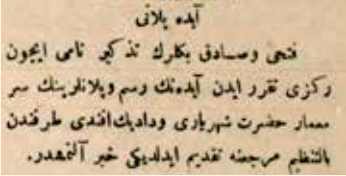 آبده پلانی
فتحی وصادق بكلرك تذكیر نامی ایچون
ركزی تقرر ایدن آبده‌نك رسم وپلانلرینك سر
معمار حضرت شهریاری ودادبك‌افندی طرفندن
بالتنظیم مرجعنه تقدیم ایدلدیكی خبر آلنمشدر.